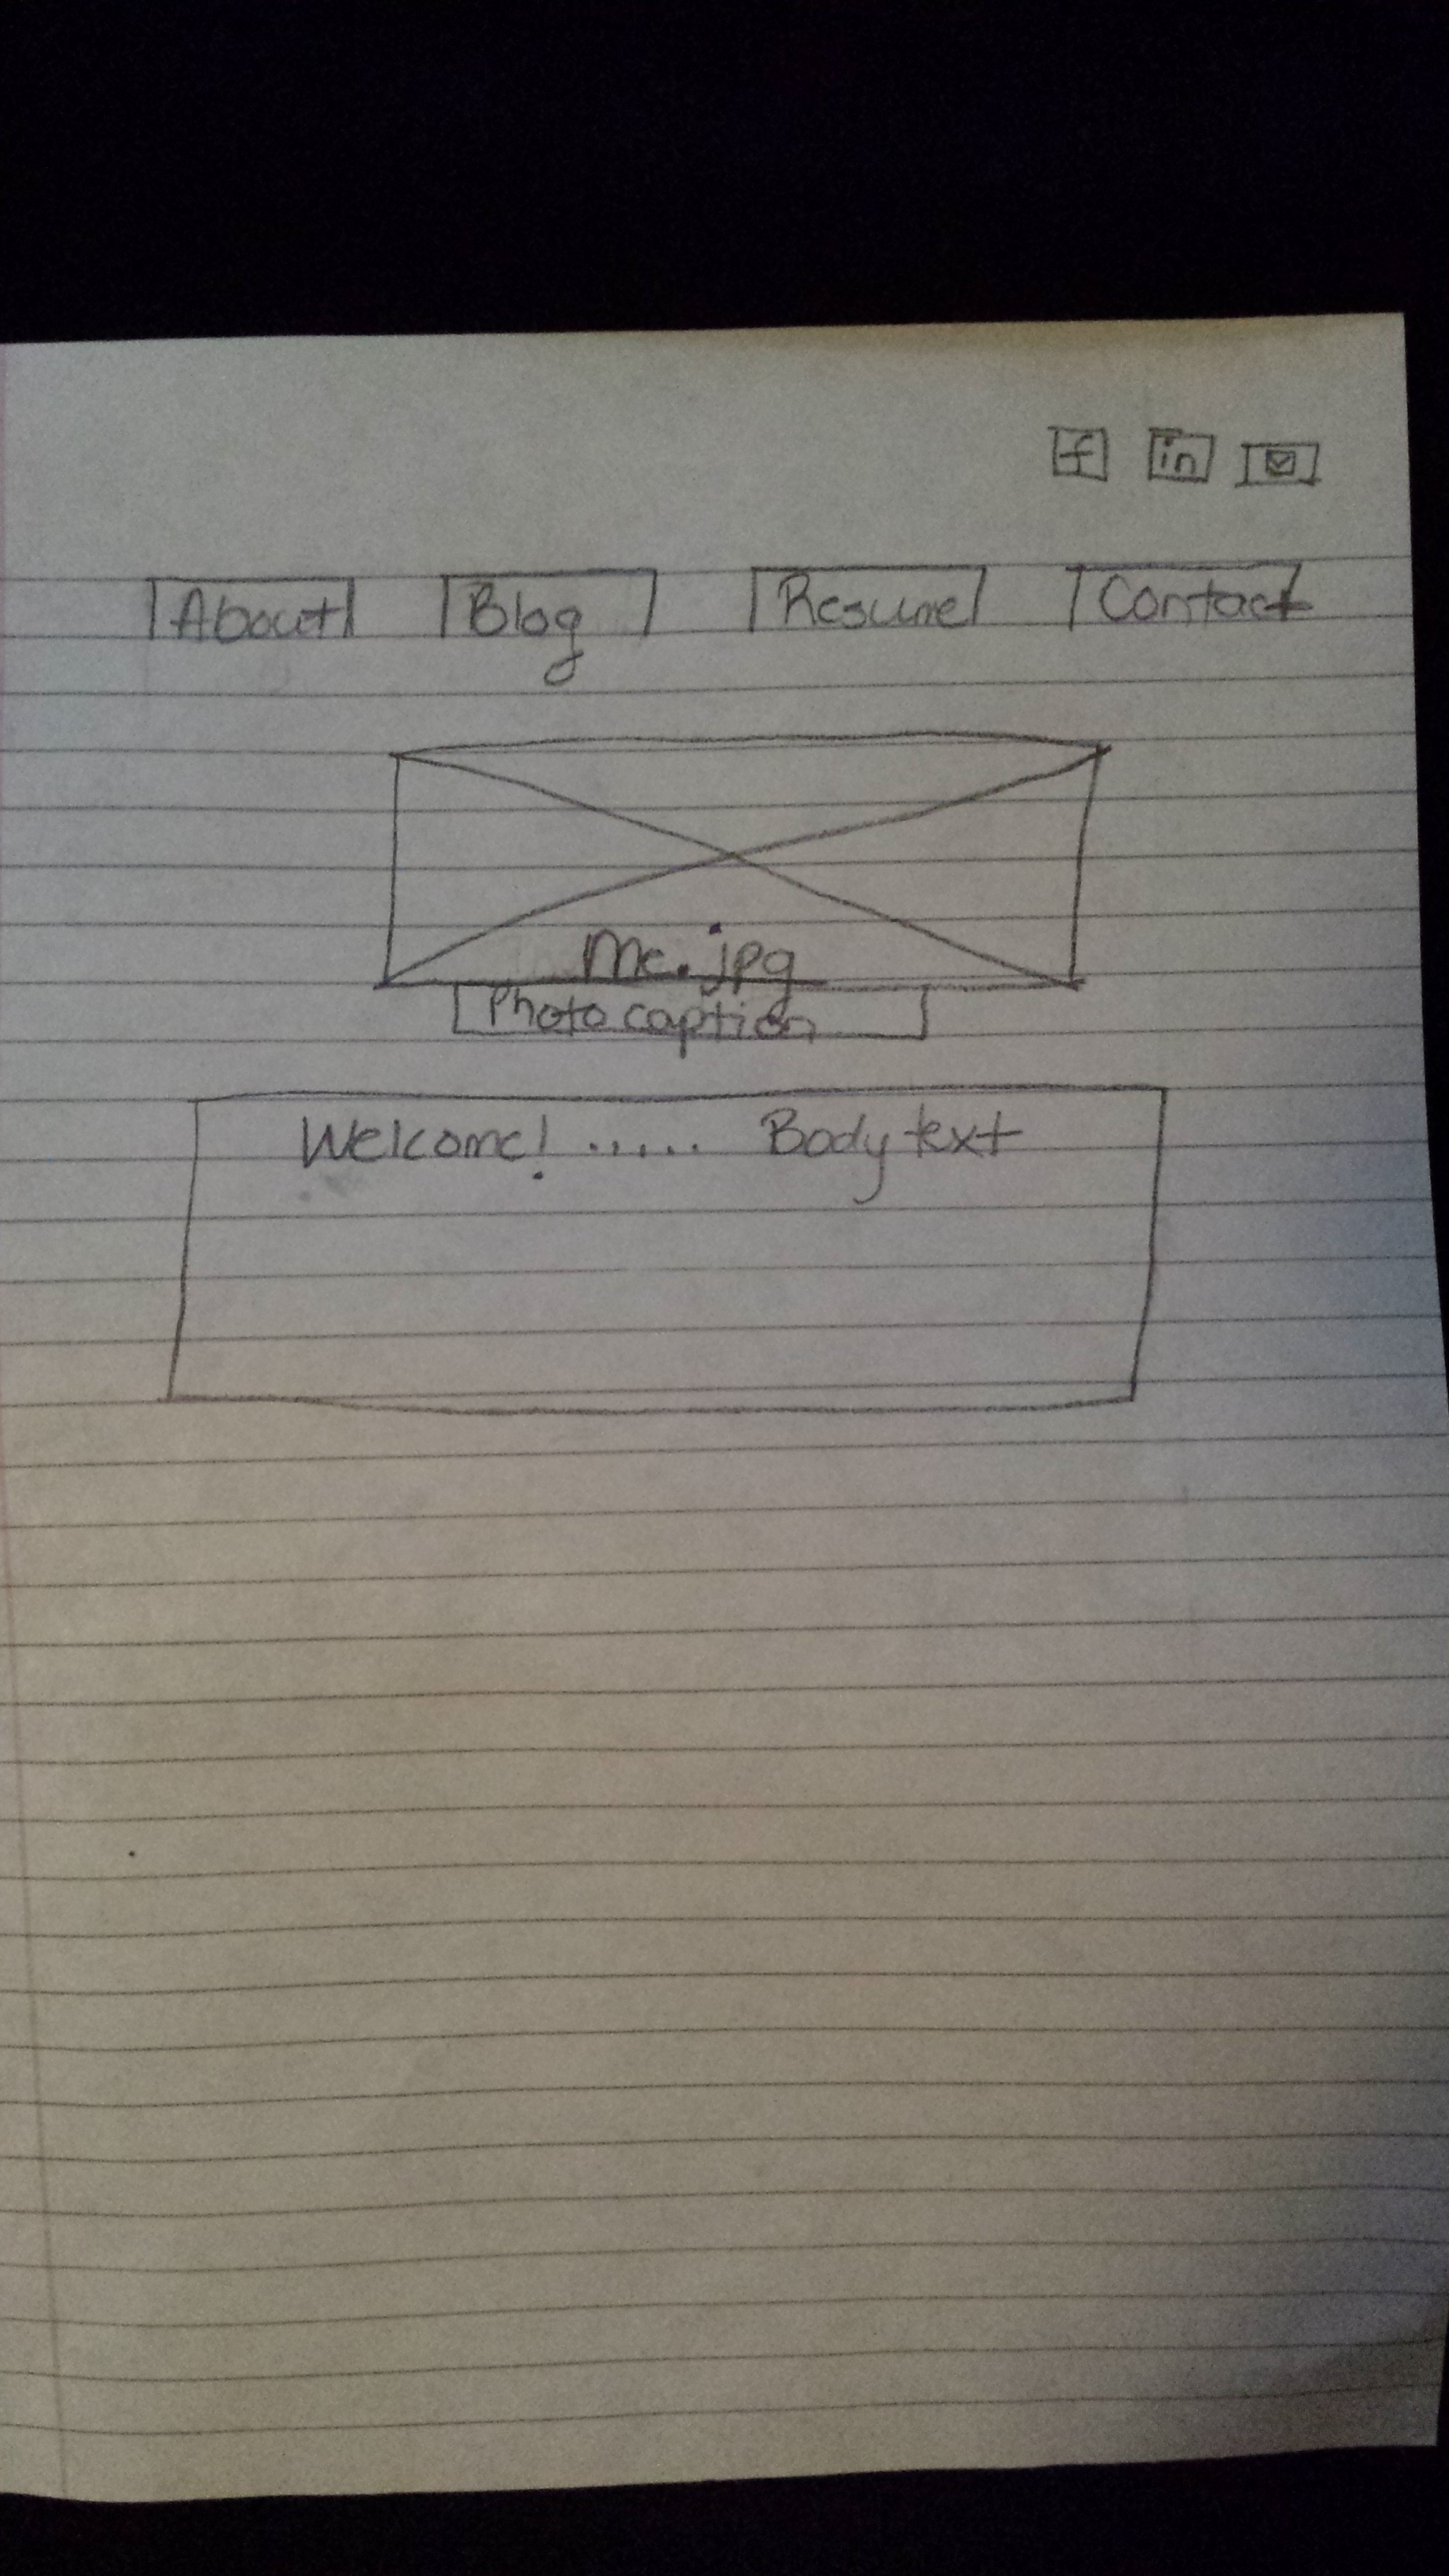 f in
About Blog Resume Contact
Me.jpg
Photo caption
Welcome! ..... Body text